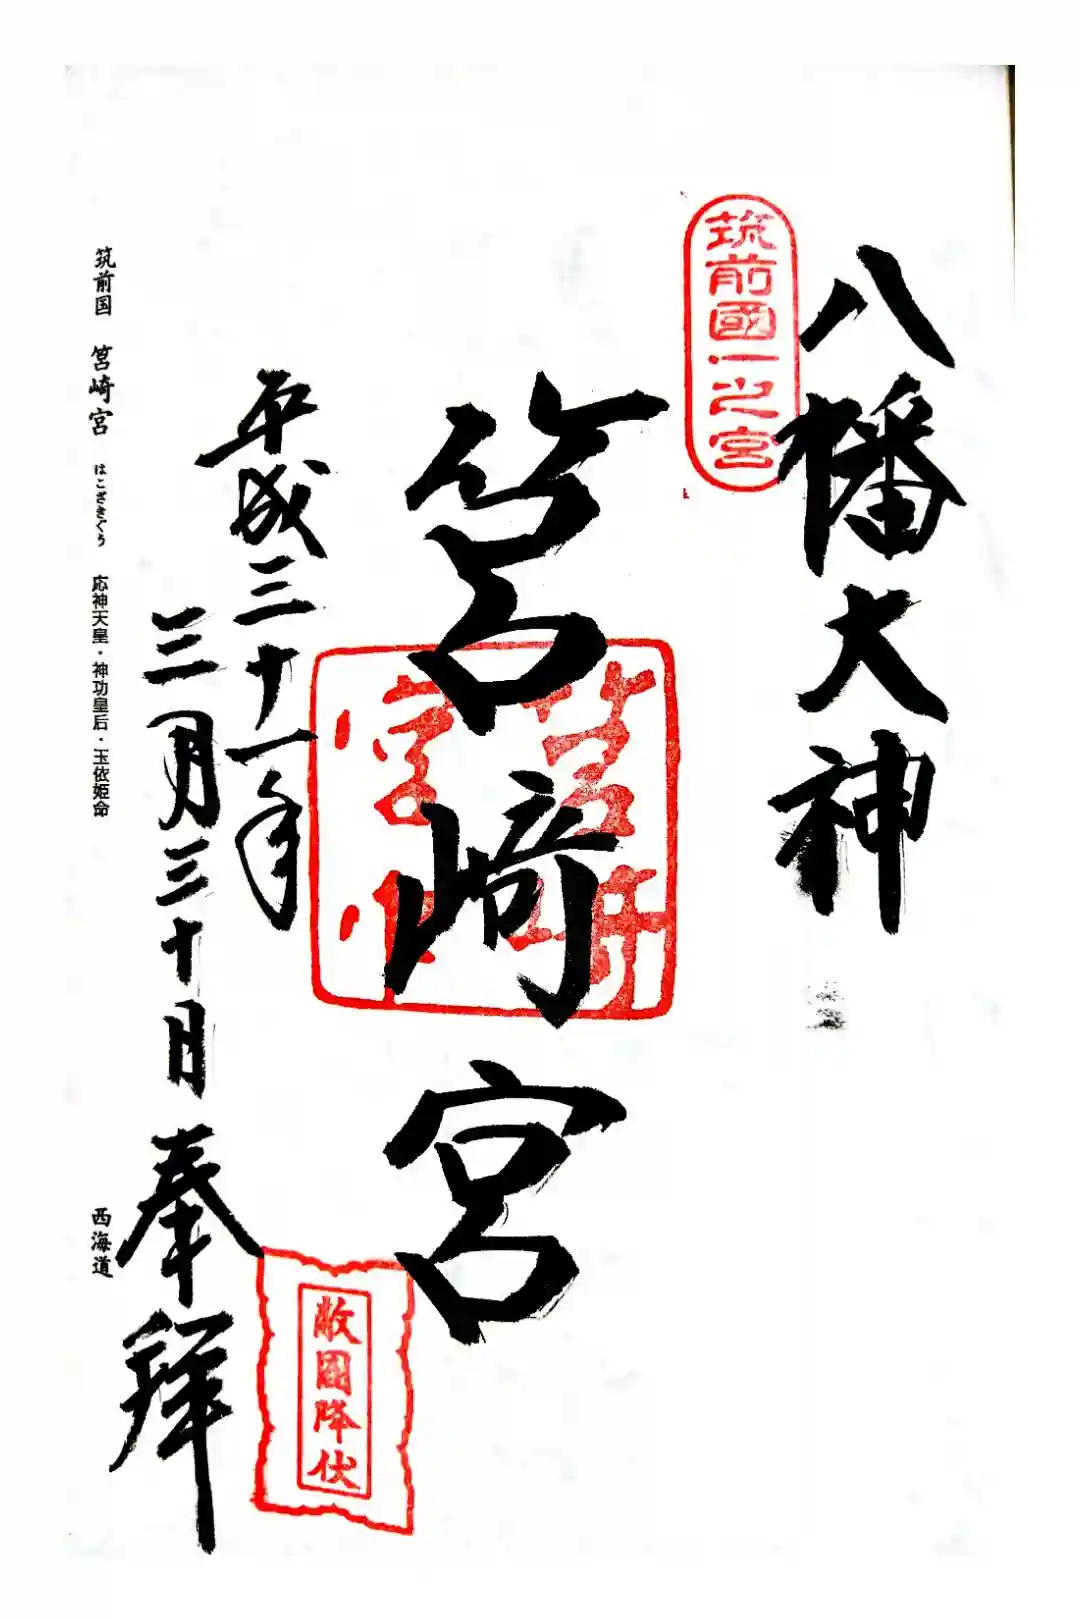 八幡大神
筑前國一之宮
筥崎宮
筥崎宮印
平成三十一年
三月三十日
奉拜
敵國降伏
筑前国 筥崎宮 はこざきぐう 応神天皇・神功皇后・玉依姫命
西海道